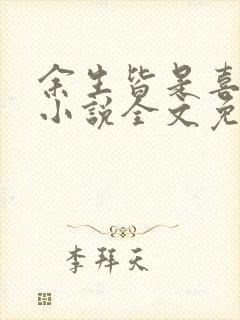 余生皆是喜
小説全文免
李拜天